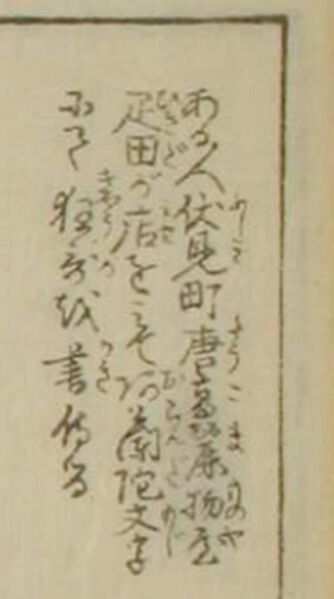 ある人伏見町唐高麗物屋
疋田が店をミて阿蘭陀文字
にて狂哥を書侍る